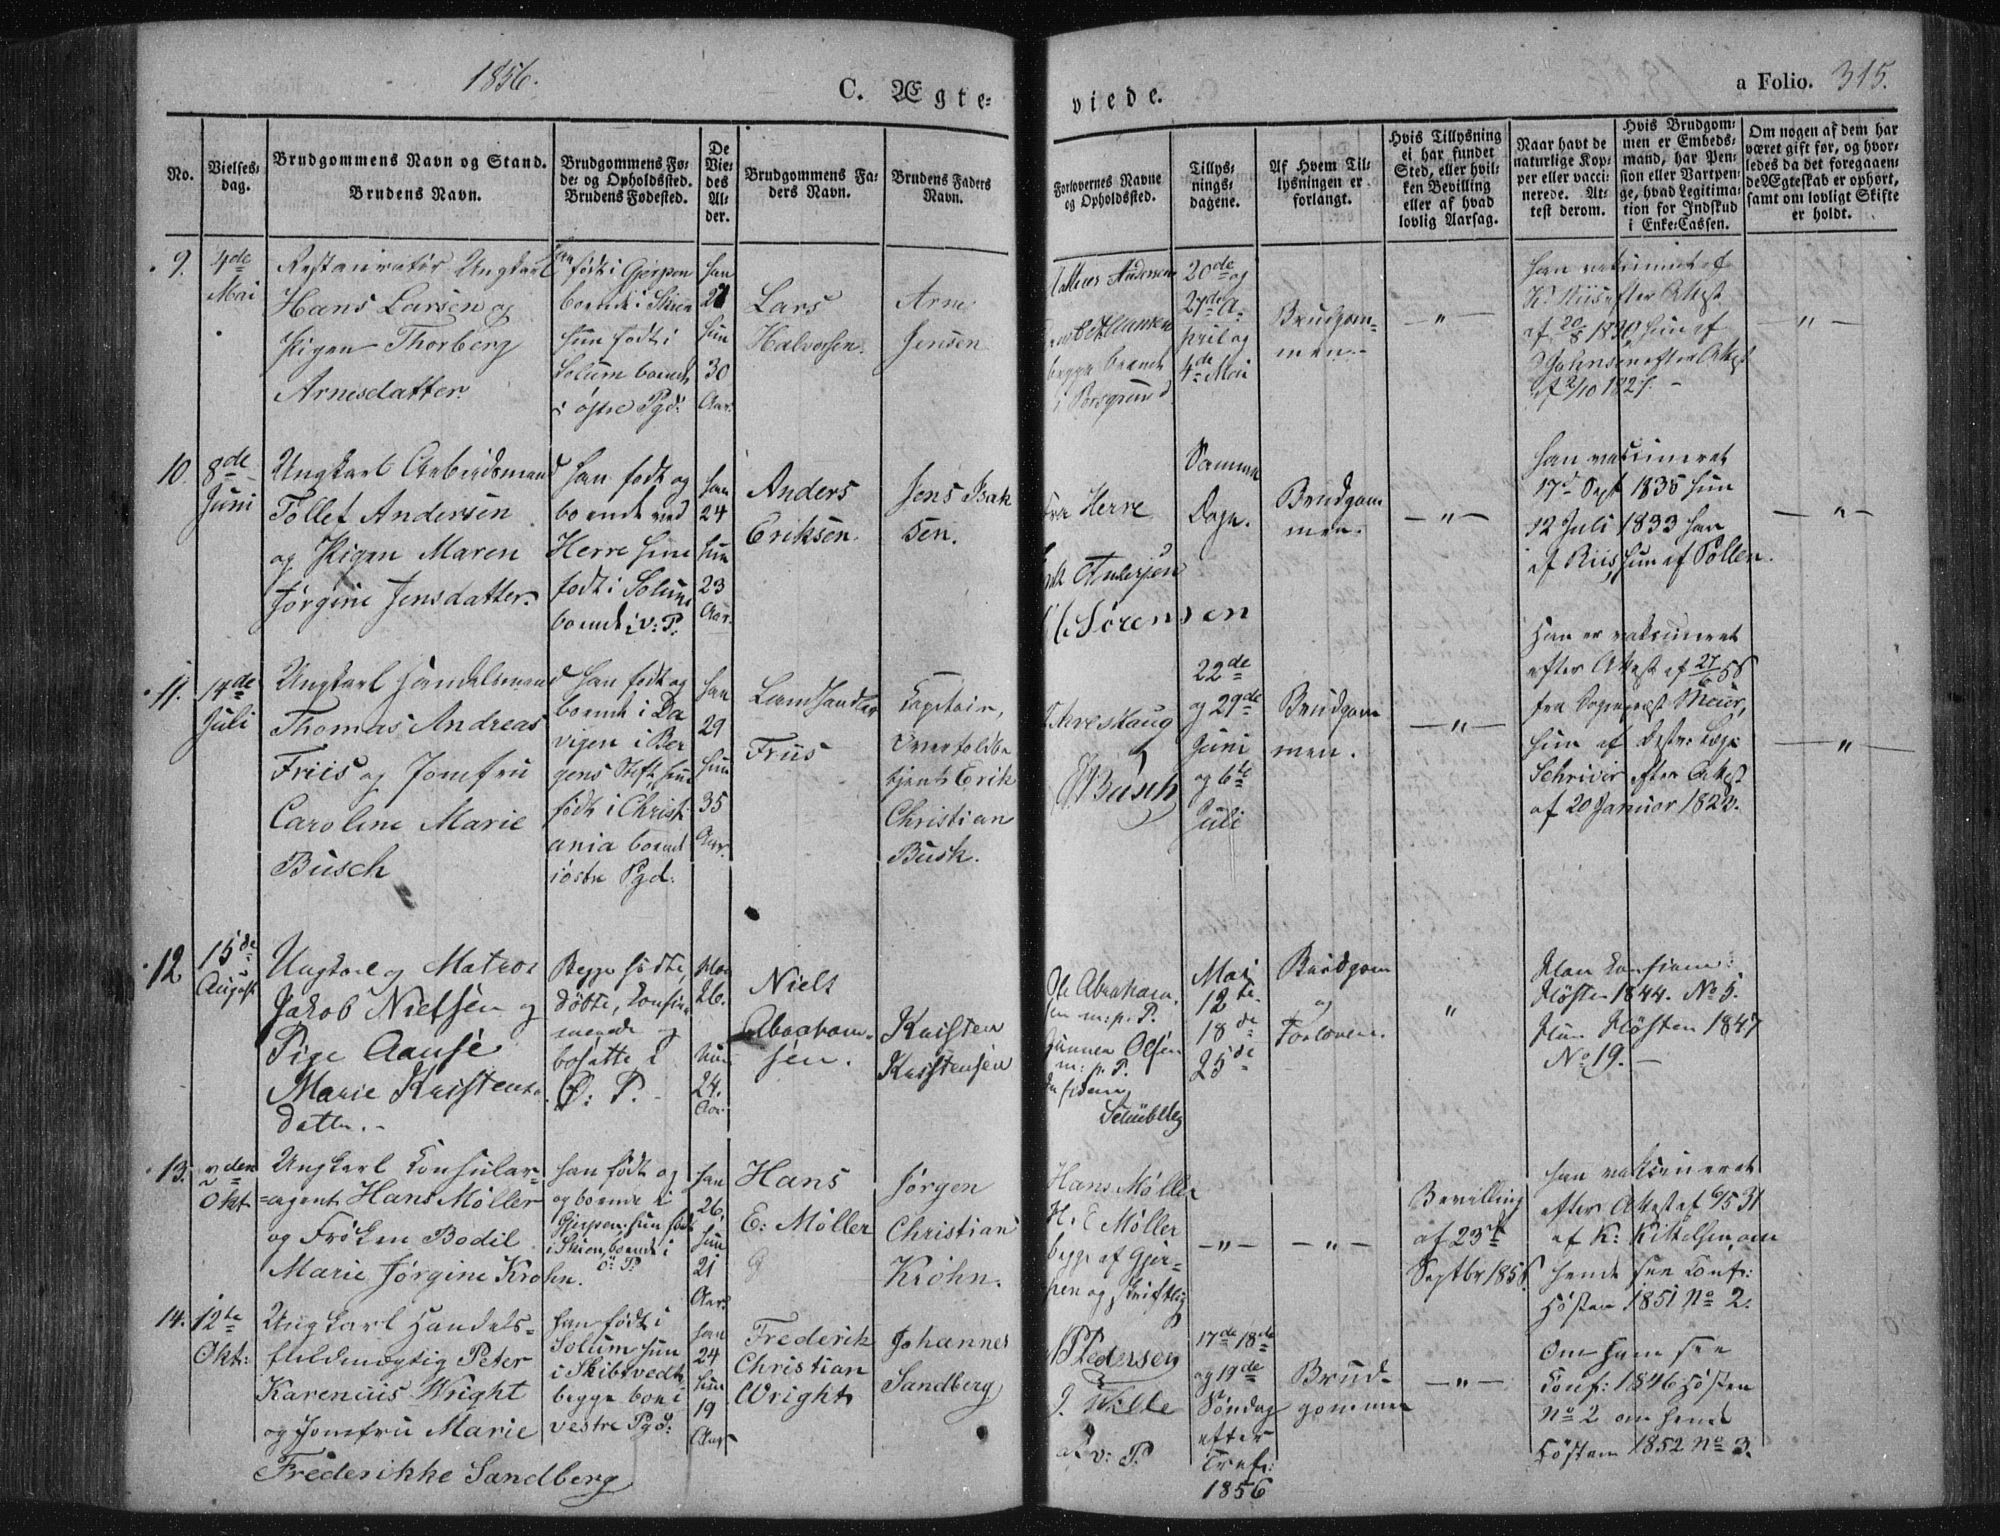 1856.
C. Ægte-
viede.
a Folio. 315.
No.
Vielses-
dag.
Brudgommens Navn og Stand.
Brudens Navn.
Brudgommens Fø-
de- og Opholdssted.
Brudens Fødested.
De
Vie-
des
Al-
der.
Brudgommens Fa-
ders Navn.
Brudens Faders
Navn.
Forlovernes Navne
og Opholdssted.
Tillys-
nings-
dagene.
Af Hvem Til-
lysningen er
forlangt.
Hvis Tillysning
ei har fundet
Sted, eller hvil-
ken Bevilling
eller af hvad
lovlig Aarsag.
Naar havt de
naturlige Kop-
per eller vacci-
nerede. At-
test derom.
Hvis Brudgom-
men er Embeds-
mand, har Pen-
sion eller Vartpen-
ge, hvad Legitima-
tion for Indskud
i Enke-Cassen.
Om nogen af dem har
været gift før, og hvor-
ledes da det foregaaen-
de Ægteskab er ophørt,
samt om lovligt Skifte
er holdt.
9.
4de
Mai
Restauratør Ungkarl
Hans Larsen og
Pigen Thorberg
Arnesdatter.
han født i Gjerpen
boende i Skien
hun født i
Solum boend
i østre Pgd:
han
hun
30
Aar.
Lars
Halvorsen.
Arne
Jensen
Andersen
begge boende
i Porsgrund
20de og
27de A-
pril og
4de Mai
Brudgom-
men.
— " —
han vaksineret af
K. Riis efter Attest
af 20/8 1830, hun af
Johnsen efter Attest
af 2/10 1827. —
— " —
10.
8de
Juni
Ungkarl Arbeidsmand
Tollef Andersen
og Pigen Maren
Jørgine Jensdatter.
han født og
boende ved
Herre hun
født i Solum
boende i v: P:
han
24
hun
23
Aar.
Anders
Eriksen.
Jens Isak
sen.
Herre
Andersen
Sørensen
Samme
Dage.
Brudgom
men.
— " —
han vaccineret
17d Sept 1835 hun
12 Juli 1833 han
af Riis, hun af Pollen.
— " —
11.
14de
Juli
Ungkarl Handelsmand
Thomas Andreas
Friis og Jomfru
Caroline Marie
Busch
han født og
boende i Da
vigen i Ber
gens Stift hun
født i Christi
ania boend
i østre Pgd:
han
29
hun
35
Aar.
Landhandler
Friis
Capitain,
Overtoldbe
tjent Erik
Christian
Busk.
Busch
22de
og 29de
Juni
og 6te
Juli
Brudgom
men.
— " —
Han er vaksineret
efter Attest af 27/6 56
fra Sognepræst Meier,
hun af Distr: Læge
Schriver efter Attest
af 20 Januar 1822.
— " —
12
15de
August
Ungkarl og Matros
Jakob Nielsen og
Pige Aaase
Marie Kristens-
datter. -
Begge fødte
døbte, konfir
merede og
bosatte i
Ø: P. -
Man
26.
Hun
24.
Aar.
Niels
Abraham-
sen.
Kristen
Kristensen
Ole Abraham-
sen m: p. P.
Gunner Olsen
m: p. P.
Schübeler
Mai
12te
18de
25de
Brudgom
og
Forlover.
"
Han konfirm:
Høsten 1844. No 5.
Hun Høsten 1847
No 19. —
13.
Okt
Ungkarl Konsular-
=agent Hans Møller
og Frøken Bodil
Marie Jørgine Krohn.
han født og
og boende i
Gjerpen. hun født
i Skien, boende i
ø: P:
han
26,
hun
21
Aar.
Hans
E: Møller
Jørgen
Christian
Krohn.
Hans Møller
H. E Møller
begge af Gjer-
pen og skriftlig
— " —
— " —
Bevilling
af 23d
Septbr 1856
han vaksineret
efter Attest af 6/5 31
af K: Kittelsen, om
hende see Conf:
Høsten 1851 No 2.
14.
12te
Okt:
Ungkarl Handels-
fuldmægtig Peter
Karenius Wright
og Jomfru Marie
Frederikke Sandberg
han født i
Solum hun
i Skibtvedt
begge boe i
vestre Pgd:
han
24
hun
19
Aar
Frederik
Christian
Wright
Johannes
Sandberg
Pedersen
J. Wille
af v: P.
17de 18de
og 19de
Søndag
efter
Tref:
1856
Brud-
gommen
— " —
Om ham see
Conf: 1846 Høsten
No 2 om hende
Høsten 1852 No 3.